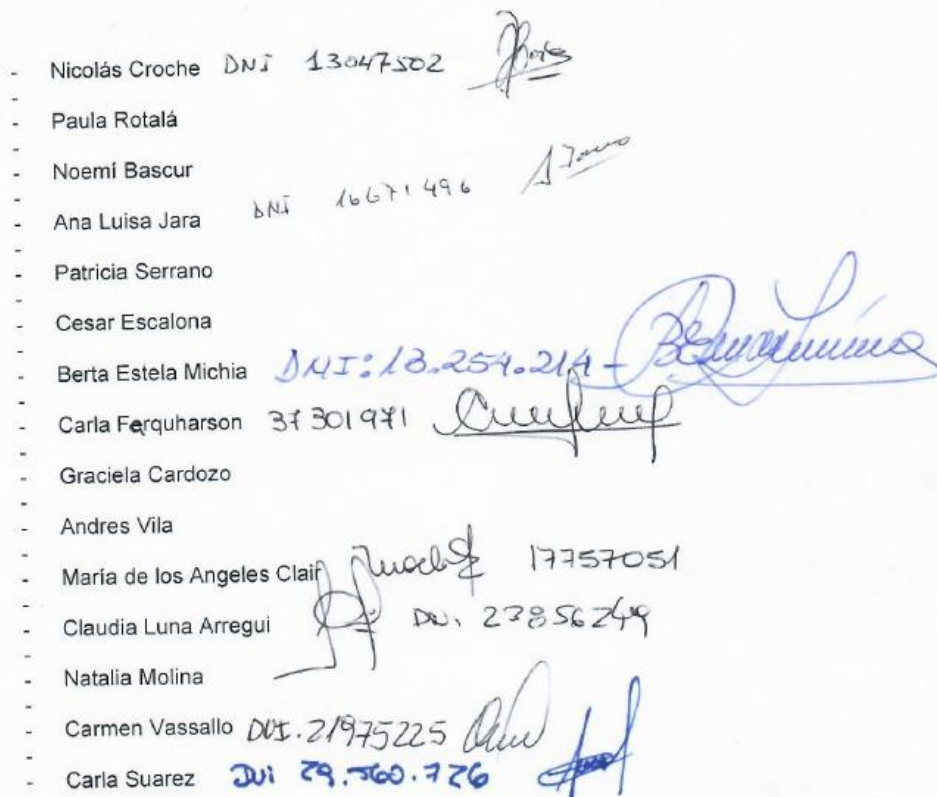 - Nicolás Croche DNI 13047502
- Paula Rotalá
- Noemí Bascur
- Ana Luisa Jara DNI 16671496
- Patricia Serrano
- Cesar Escalona
- Berta Estela Michia DNI: 13.254.214-
- Carla Farquharson 37301971
- Graciela Cardozo
- Andres Vila
- María de los Angeles Clair 17757051
- Claudia Luna Arregui DNI. 23856249
- Natalia Molina
- Carmen Vassallo DNI. 21975225
- Carla Suarez DNI 29.560.726